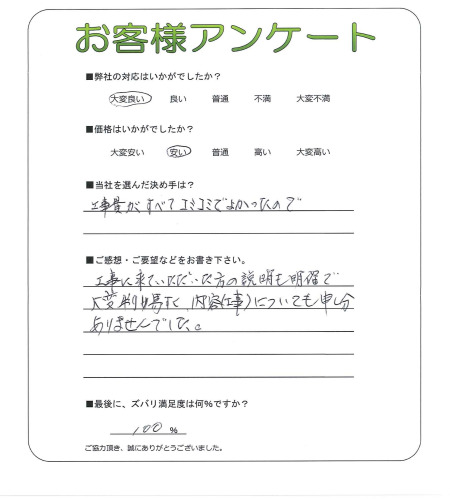 お客様アンケート
■弊社の対応はいかがでしたか？
大変良い 良い 普通 不満 大変不満
■価格はいかがでしたか？
大変安い 安い 普通 高い 大変高い
■当社を選んだ決め手は？
工事費がすべてコミコミでよかったので
■ご感想・ご要望などをお書き下さい。
工事に来ていただいた方の説明も明確で
大変判り易く、内容(仕事)についても申し分
ありませんでした。
■最後に、ズバリ満足度は何％ですか？
100 %
ご協力頂き、誠にありがとうございました。